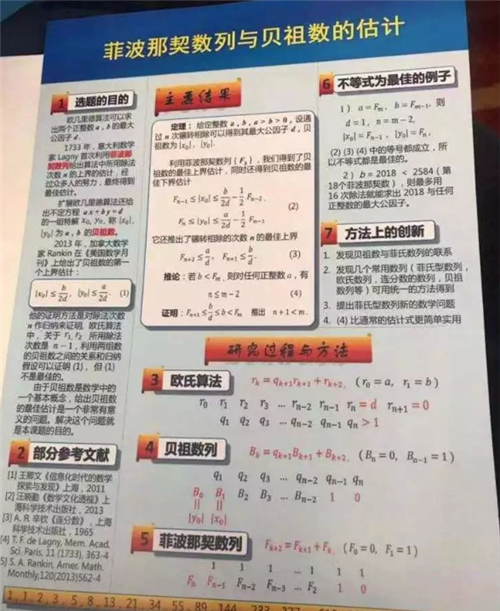 菲波那契数列与贝祖数的估计
1 选题的目的
欧几里德算法可以求
出两个正整数 a, b 的最大
公因子 d。
1733 年，意大利数学
家 Lagny 首次利用菲波那
契数列给出算法中所用除法
次数 n 的上界的估计，经
过众多人的努力，最终得到
最佳估计。
扩展欧几里德算法还给
出不定方程 ax + by = d
的一组特解 x₀, y₀，称 |x₀|,
|y₀| 为 a, b 的贝祖数。
2013 年，加拿大数学
家 Rankin 在《美国数学月
刊》上给出了贝祖数的第一
个上界估计：
|x₀| ≤ b/2d, |y₀| ≤ a/2d (1)
他的证明方法是对除法次数
n 作归纳来证明，欧氏算法
中，关于 r₁, r₂ 所用除法
次数是 n − 1，利用两组数
的贝祖数之间的关系和归纳
假设可以证明 (1)，但 (1)
不是最佳的。
由于贝祖数是数学中的
一个基本概念，给出贝祖数
的最佳估计是一个非常有意
义的问题。解决这个问题就
是本课题的目的。
2 部分参考文献
[2] 汪晓勤《数学文化透视》上
海科学技术出版社，2013
[3] А. Я. 辛钦《连分数》，上海
科学技术出版社，1965
[4] T. F. de Lagny, Mem. Acad.
Sci. Paris, 11 (1733), 363-4
[5] S. A. Rankin, Amer. Math.
Monthly, 120(2013)562-4
主要结果
定理：给定整数 a, b, a > b > 0，设通
过 n 次辗转相除可以得到其最大公因子 d，贝
祖数为 |x₀|, |y₀|。
利用菲波那契数列 {Fₙ}，我们得到了贝
祖数的最佳上界估计，同时还得到贝祖数的最
佳下界估计
Fₙ₋₁ ≤ |x₀| ≤ b/2d − 1/2 Fₙ₋₂,
(2)
Fₙ ≤ |y₀| ≤ a/2d − 1/2 Fₙ₋₁.
它还推出了辗转相除的次数 n 的最佳上界
Fₙ₊₂ ≤ a/d, Fₙ₊₁ ≤ b/d. (3)
推论：若 b < Fₘ，则对任何正整数 a，有
n ≤ m − 2 (4)
证明：Fₙ₊₁ ≤ b/d ≤ b < Fₘ 推出 n + 1 < m.
研究过程与方法
3 欧氏算法 rₖ = qₖ₊₁rₖ₊₁ + rₖ₊₂, (r₀ = a, r₁ = b)
r₀ r₁ r₂ r₃ … rₙ₋₂ rₙ₋₁ rₙ = d rₙ₊₁ = 0
q₁ q₂ q₃ … qₙ₋₂ qₙ₋₁ qₙ > 1
4 贝祖数列 Bₖ = qₖ₊₁Bₖ₊₁ + Bₖ₊₂, (Bₙ = 0, Bₙ₋₁ = 1)
q₁ q₂ q₃ … qₙ₋₂ qₙ₋₁ qₙ
B₀ B₁ B₂ B₃ … Bₙ₋₂ 1 0
|| ||
|y₀| |x₀|
5 菲波那契数列 Fₖ₊₂ = Fₖ₊₁ + Fₖ (F₀ = 0, F₁ = 1)
1 1 1 … 1 1 1
Fₙ Fₙ₋₁ Fₙ₋₂ Fₙ₋₃ … F₂ 1 0
6 不等式为最佳的例子
1) a = Fₘ, b = Fₘ₋₁, 则
d = 1, n = m − 2,
|x₀| = Fₙ₋₁, |y₀| = Fₙ.
(2) (3) (4) 中的等号都成立，所
以不等式都是最佳的。
2) b = 2018 < 2584 ( 第
18个菲波那契数 )，则最多用
16 次除法就能求出 2018 与任何
正整数的最大公因子。
7 方法上的创新
1. 发现贝祖数与菲氏数列的联系
2. 发现几个常用数列（菲氏型数列，
欧氏数列，连分数的数列，贝祖
数列等）可用统一的方法得到
3. 提出菲氏型数列新的数学问题
4. (4) 比通常的估计式更简单实用
1, 1, 2, 3, 5, 8, 13, 21, 34, 55, 89